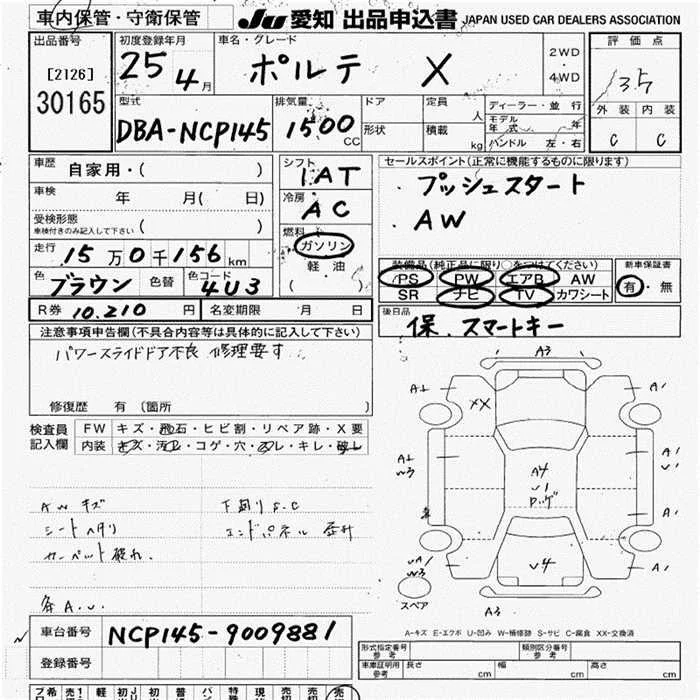 車内保管・守衛保管 JU 愛知 出品申込書 JAPAN USED CAR DEALERS ASSOCIATION
出品番号 初度登録年月 車名・グレード 2WD・4WD 評価点
[2126] 30165 25 4月 ポルテ X 3.5
型式 排気量 ドア 定員 人 ディーラー・並行 外装 内装
DBA-NCP145 1500 CC 形状 積載 kg モデル年式 年 ハンドル 左・右 C C
車歴 自家用・( ) シフト IAT セールスポイント(正常に機能するものに限ります)
車検 年 月( 日) 冷房 AC ・プッシュスタート
受検形態 車検付きのみ記入して下さい ( ) 燃料 ガソリン ・AW
走行 15万0千156km 軽油 装備品(純正品に限り○をつけてください) 新車保証書
色 ブラウン 色替 色コード 4U3 ( ) PS PW エアB AW 有・無
SR ナビ TV カワシート
R券 10.210 円 名変期限 月 日 後日品 保.スマートキー
注意事項申告欄(不具合内容等は具体的に記入して下さい)
パワースライドドア不良 修理要す
修復歴 有 〔箇所 〕
検査員記入欄 FW キズ・飛石・ヒビ割・リペア跡・X要
内装 キズ・汚レ・コゲ・穴・スレ・キレ・破レ
AWキズ 下廻りS.C
シートヘタリ エンドパネル 歪
カーペット破れ.
各A.U.
A3
A1 XX A1
A1 W3 A4 U1 A1 U1
A1
UA1 W3 U4
スペア A3
A-キズ E-エクボ U-凹み W-補修跡 S-サビ C-腐食 XX-交換済
車台番号 NCP145-9009881 形式指定番号 参考 類別区分番号 参考
登録番号 車庫証明用 参考 長さ cm 幅 cm 高さ cm